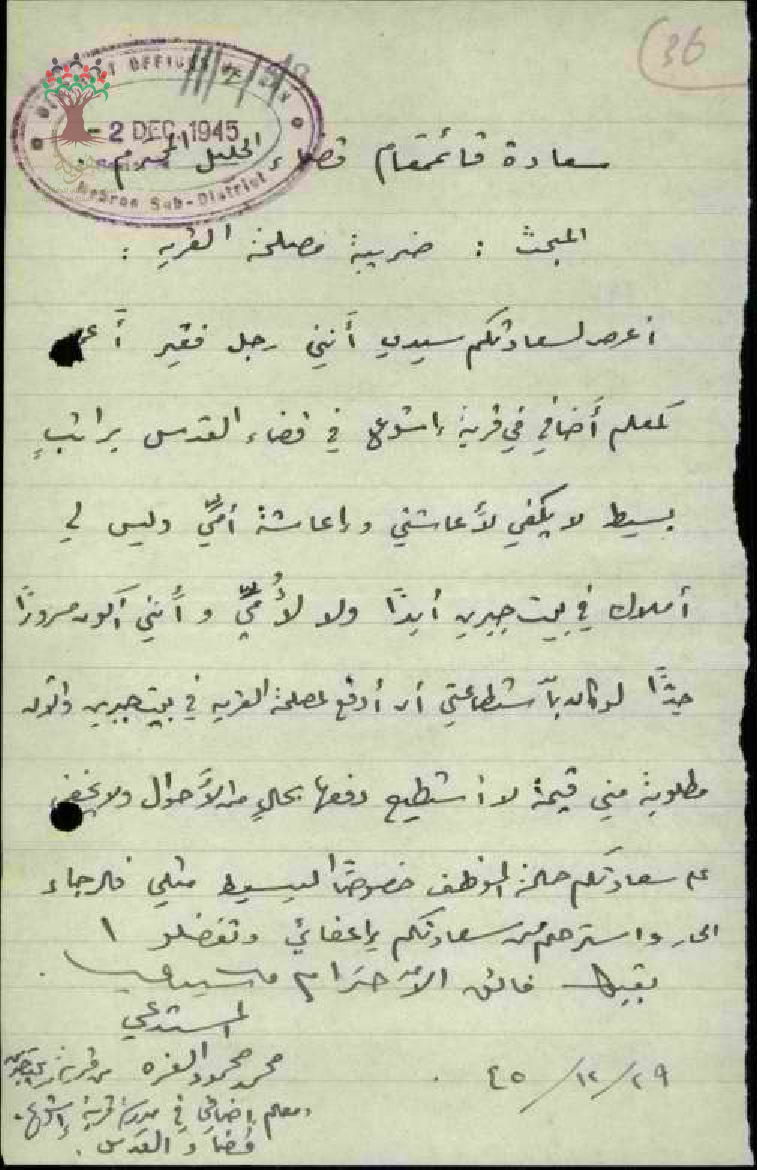 36
DISTRICT OFFICER'S
- 2 DEC. 1945
Hebron Sub-District
سعادة قائمقام قضاء الخليل المحترم .
المبحث : ضريبة مصلحة القريه :
أعرض لسعادتكم سيدي أنني رجل فقير
كمعلم أضافي في قرية إشوع في قضاء القدس براتبٍ
بسيط لا يكفي لأعاشتي و إعاشة أمّي وليس لي
أملاك في بيت جبرين أبدًا ولا لأُمّي و أنني أكون مسرورًا
جدًّا لو كان بأستطاعتي أن أدفع لمصلحة القريه في بيت جبرين
مطلوبة مني قيمة لا أستطيع دفعها بحالٍ من الأحوال ولا يخفى
على سعادتكم حالة الموظف خصوصًا البسيط مثلي فالرجاء
الحار واسترحم من سعادتكم بإعفائي وتفضلوا
بقبول فائق الأحترام سيدي .
المستدعي
محمد محمود العزه من
٢٩ / ١٢ / ٤٥
ومعلم إضافي في مدرسة قرية إشوع .
قضاء القدس .